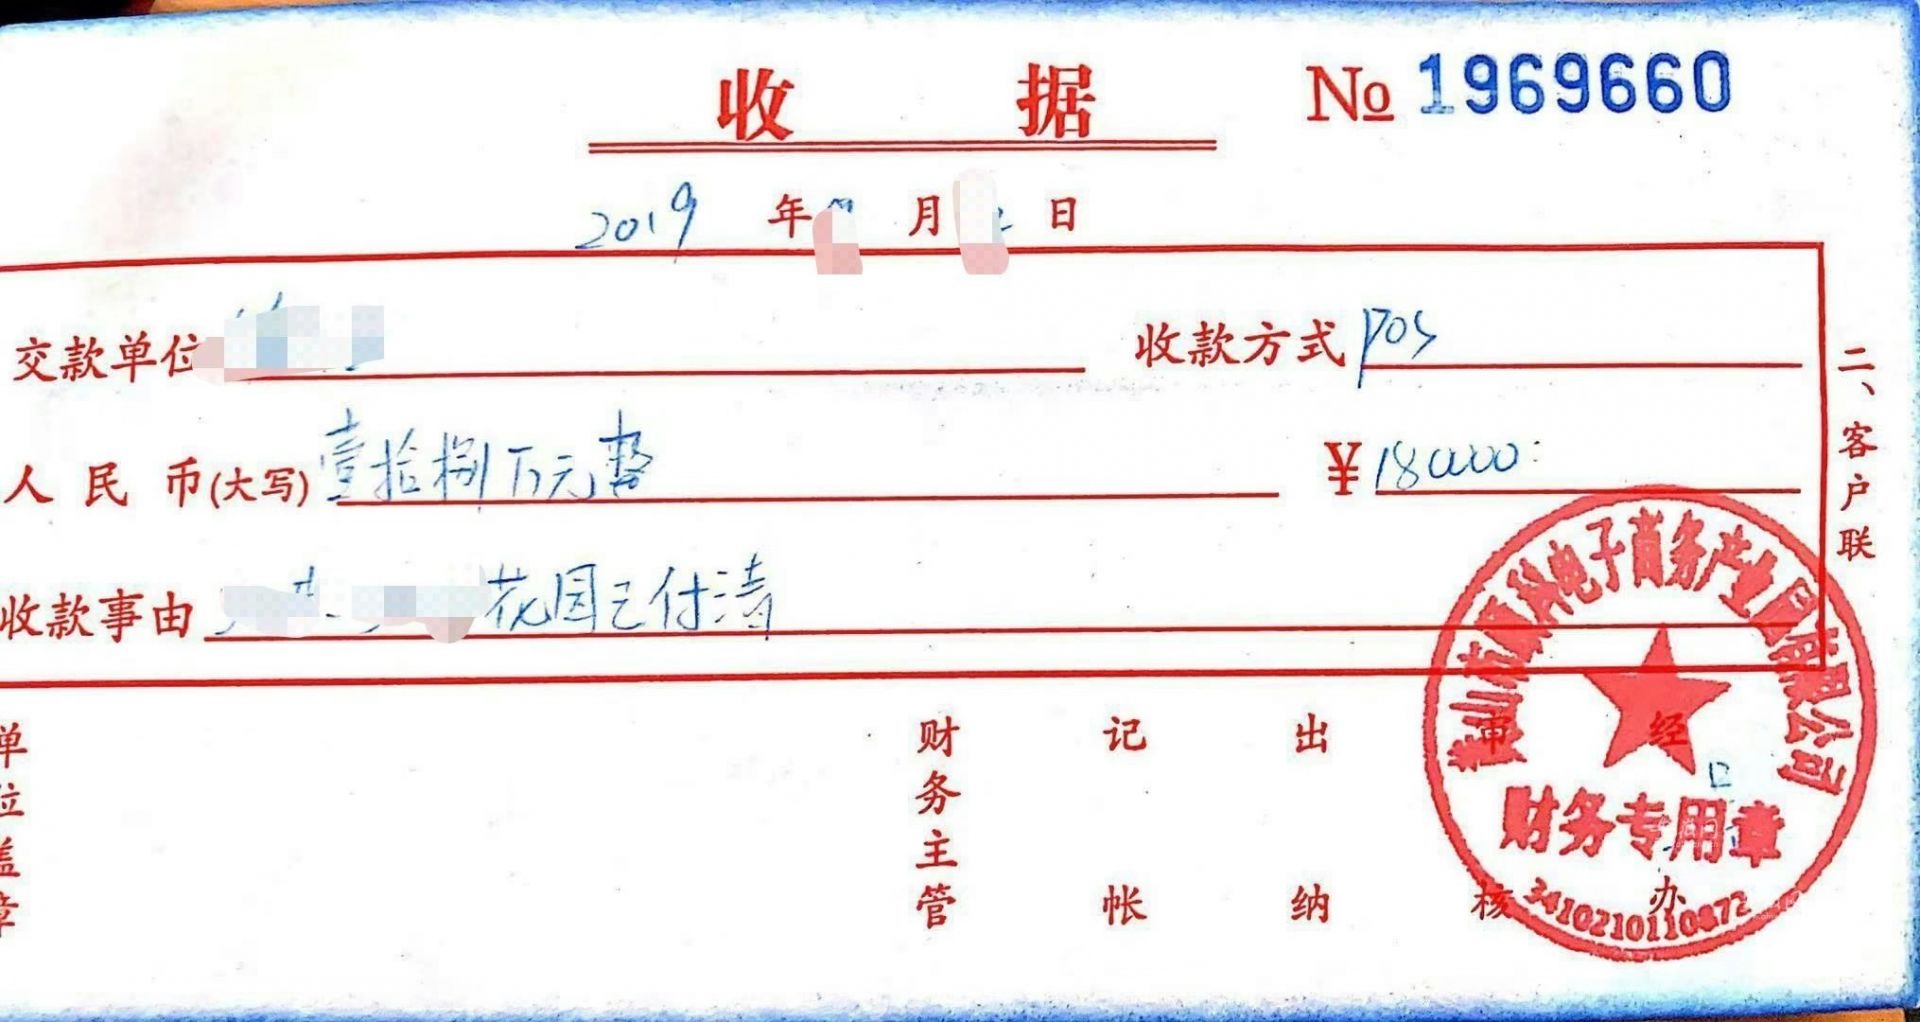 收据 No 1969660
2019 年 月 日
交款单位 收款方式 pos
人民币(大写) 壹拾捌万元整 ¥180000:
收款事由 花园已付清
二、客户联
单位盖章 财务主管 记帐 出纳 审核 经办
黄山市 科电子商务产业园有限公司
财务专用章
3410210110872